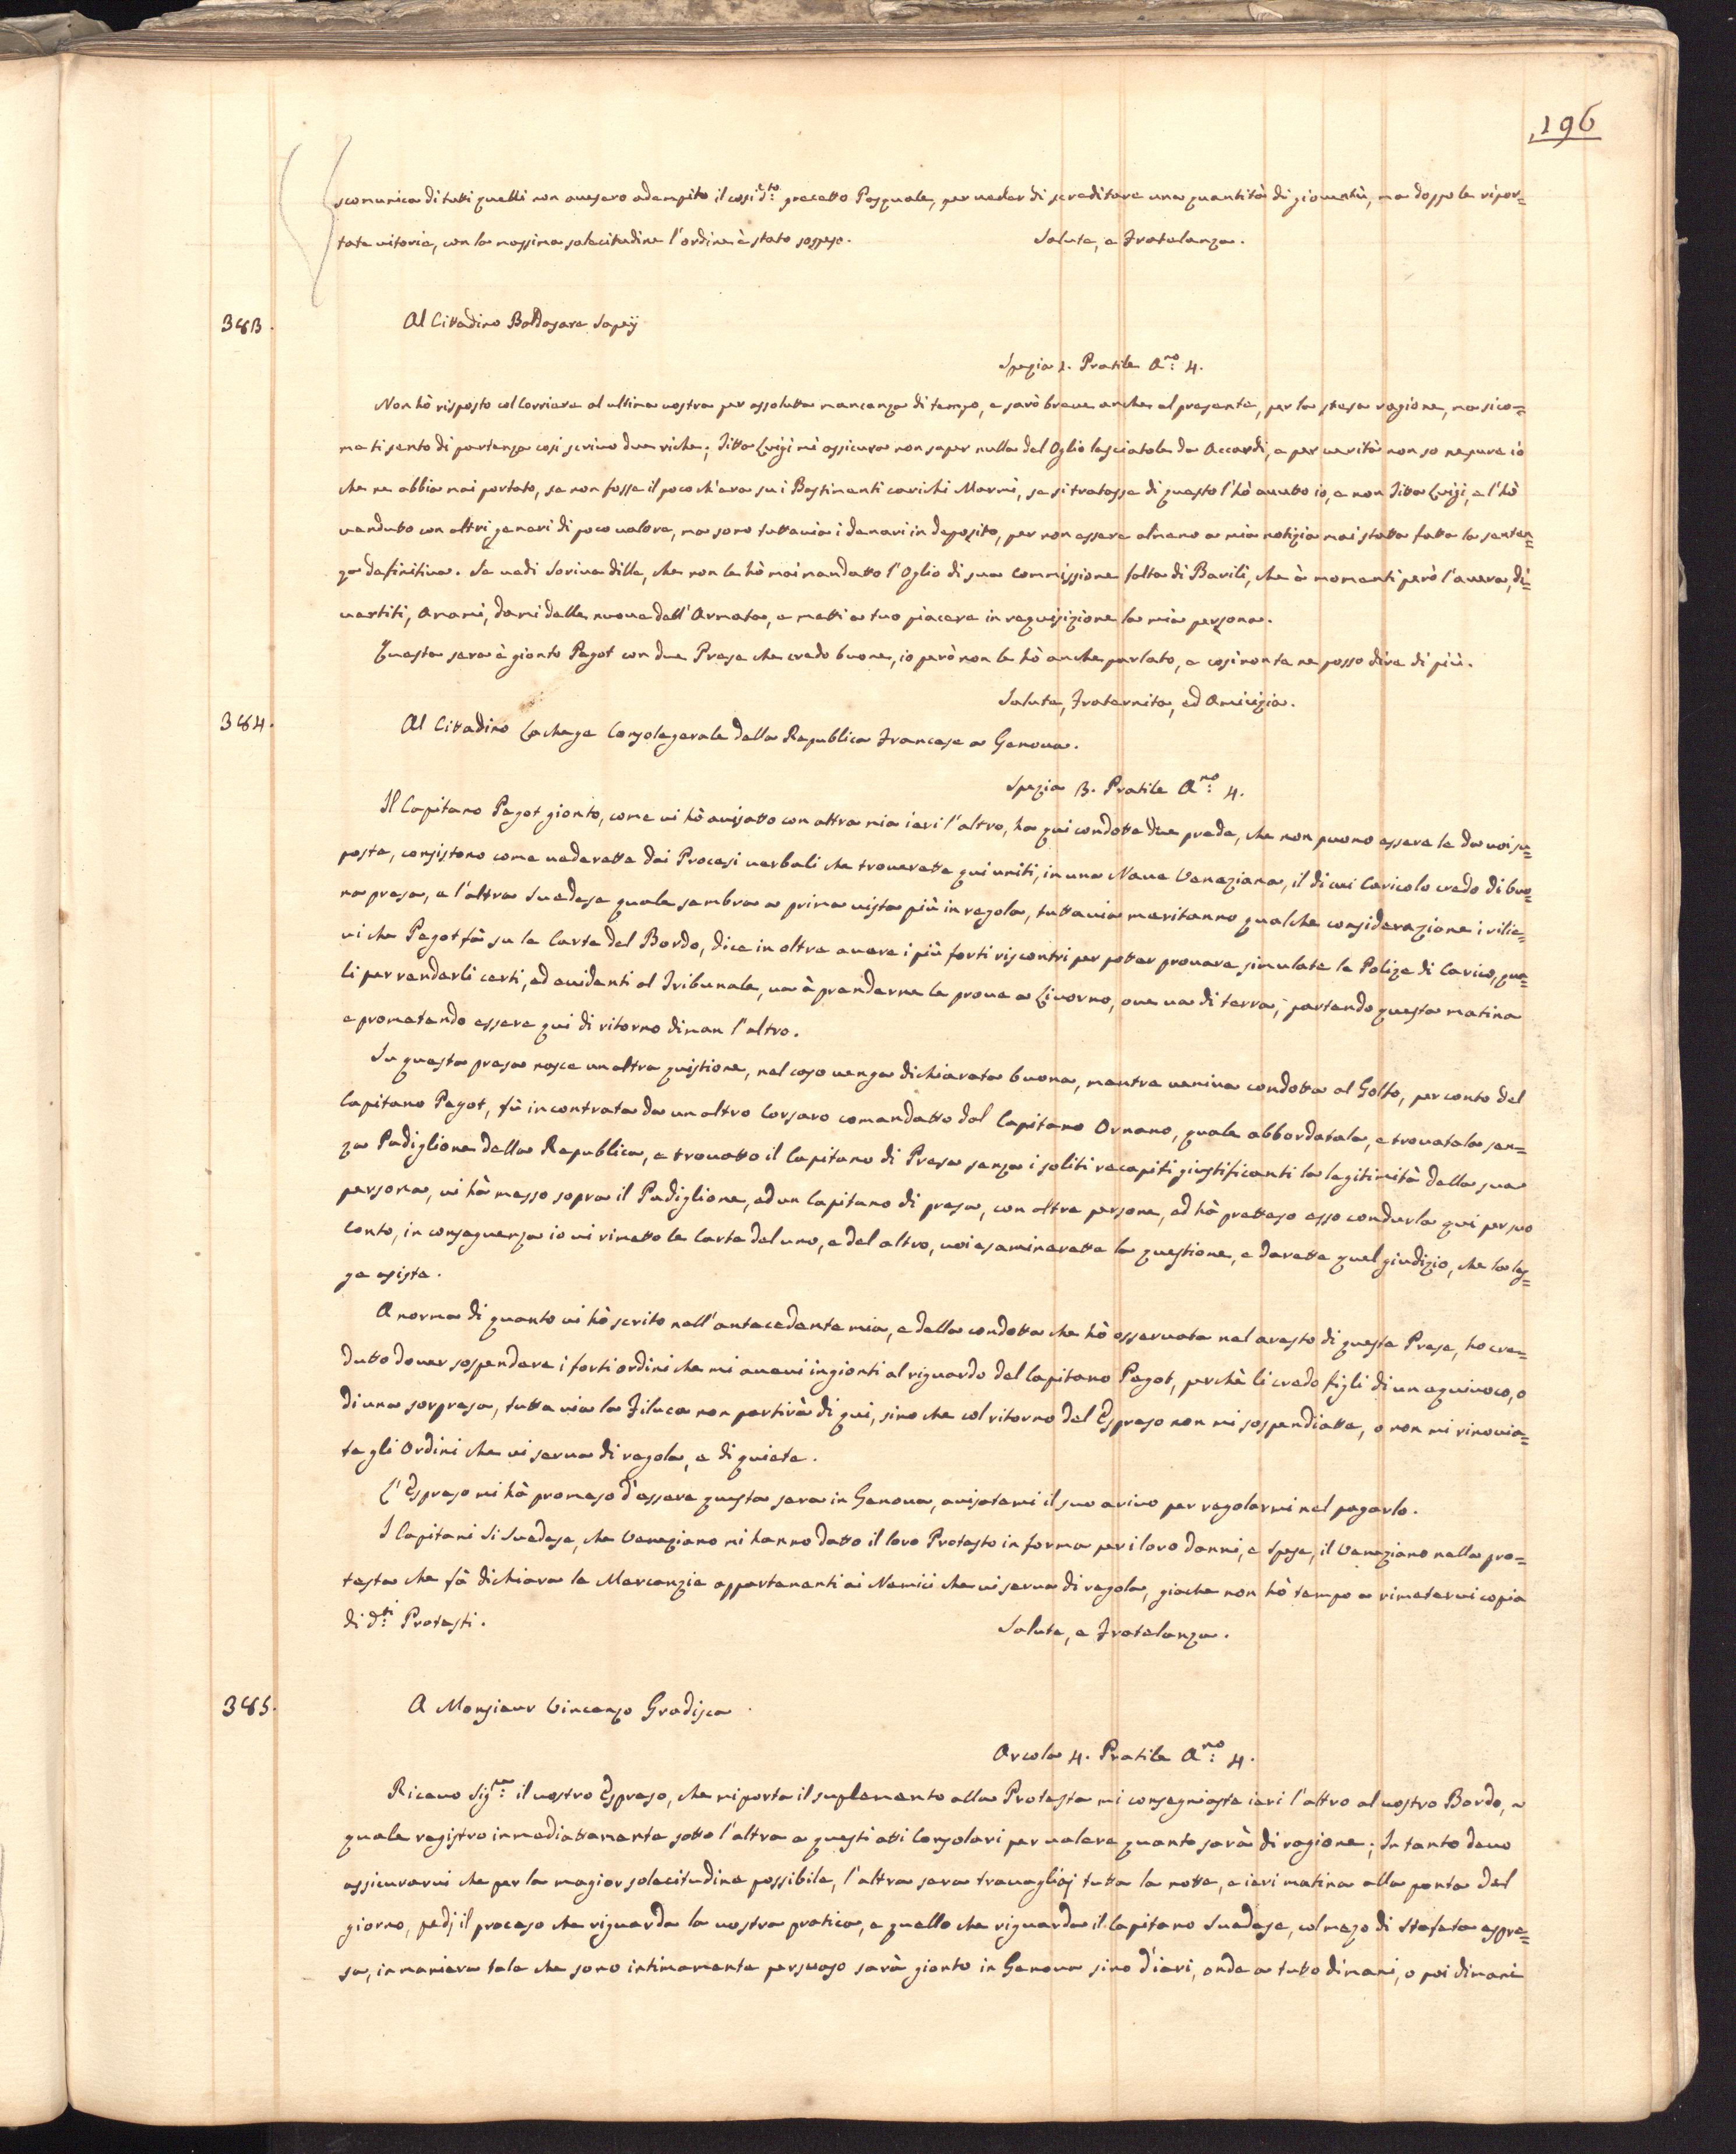 196
scomunica di tutti quelli non avesero adempito il cosi d.to precetto Pasquale, per veder di screditare una quantità di gioventù, ma doppo le ripor=
tate vitorie, con la massima solecitudine l'ordine è stato sospeso. Salute, e Fratelanza.
383. Al Cittadino Baldasare Sapej
Spezia 1. Pratile A.no 4.
Non hò risposto col Corriere al ultima vostra per assolutta mancanza di tempo, e sarò breve anche al presente, per la stesa ragione, ma sico=
me ti sento di partenza cosi scrivo due riche; Titta Luigi mi assicura non saper nulla del Oglio lasciatole da Accardi, e per verità non so nepure io
che ne abbia mai portato, se non fosse il poco ch'era su i Bastimenti carichi Marmi, se si tratasse di questo l'hò avutto io, e non Titta Luigi, e l'hò
vendutto con altri generi di poco valore, ma sono tuttavia i denari in deposito, per non essere almeno a mia notizia mai statta fatta la senten=
za definitiva. Se vedi Soriva dille, che non le hò mai mandatto l'Oglio di sua Commissione falta di Barili, che à momenti però l'avera, di=
vertiti, Amami, dami delle nuove dell'Armata, e metti a tuo piacere in requisizione la mia persona.
Questa sera è gionto Pagot con due Prese che credo buone, io però non le hò anche parlato, e cosi non te ne posso dire di più.
Salute, Fraternita, ed Amicizia.
384. Al Cittadino Lachage Consolegerale della Republica Francese a Genova.
Spezia 3. Pratile A.no 4.
Il Capitano Pagot gionto, come vi hò avisatto con altra mia ieri l'altro, ha qui condotte due prede, che non puono essere le da voi su=
poste, consistono come vederette dai Procesi verbali che troverette qui uniti, in una Nave Veneziana, il di cui Carico lo credo di buo=
na presa, e l'altra Suedese quale sembra a prima vista più in regola, tuttavia meritanno qualche considerazione i rilie=
vi che Pagot fà su le Carte del Bordo, dice in oltre avere i più forti riscontri per potter provare simulate le Polize di Carico, qua=
li per renderli certi, ed evidenti al Tribunale, và à prenderne le prove a Livorno, ove va di terra, partendo questa matina
e prometendo essere qui di ritorno diman l'altro.
Su questa presa nasce un altra quistione, nel caso venga dichiarata buona, mentre veniva condotta al Golfo, per conto del
Capitano Pagot, fù incontrata da un altro Corsaro comandatto dal Capitano Ornano, quale abbordatala, e trovatala sen=
za Padiglione della Republica, e trovatto il Capitano di Presa senza i soliti recapiti giustificanti la legitimità della sua
persona, vi hà messo sopra il Padiglione, ed un Capitano di presa, con altre persone, ed hà pretteso esso condurla qui per suo
conto, in conseguenza io vi rimetto le Carte del uno, e del altro, voi esaminerette la questione, e darette quel giudizio, che la leg=
ge esiste.
A norma di quanto vi hò scrito nell'antecedente mia, e della condotta che hò osservata nel aresto di queste Prese, ho cre=
dutto dover sospendere i forti ordini che mi avevi ingionti al riguardo del Capitano Pagot, perchè li credo figli di un equivoco, o
di una sorpresa, tutta via la Filuca non partirà di qui, sino che col ritorno del Espreso non mi sospendiatte, o non mi rinovia=
te gli Ordini che vi serva di regola, e di quiete.
L'Espreso mi hà promeso d'essere questa sera in Genova, avisatemi il suo arivo per regolarmi nel pagarlo.
I Capitani Si Suedese, che Veneziano mi hanno datto il loro Protesto in forma per i loro danni, e spese, il Veneziano nella pro=
testa che fà dichiara le Mercanzie appartenenti ai Nemici che vi serva di regola, giache non hò tempo a rimetervi copia
di d.ti Protesti. Salute, e Fratelanza.
385. A Monsieur Vincenzo Gradisca
Arcola 4. Pratile A.no 4.
Ricevo Sig.re il vostro Espreso, che mi porta il suplemento alla Protesta mi consegniaste ieri l'altro al vostro Bordo, e
quale registro inmediattamente sotto l'altra a questi atti Consolari per valere quanto sarà di ragione; In tanto devo
assicurarvi che per la magior solecitudine possibile, l'altra sera travagliaj tutta la notte, e ieri matina alla ponta del
giorno, pedj il proceso che riguarda la vostra pratica, e quello che riguarda il Capitano Suedese, col mezo di Stafeta espre=
sa, in maniera tale che sono intimamente persuaso sarà gionto in Genova sino d'ieri, onde a tutto dimani, o poi dimani